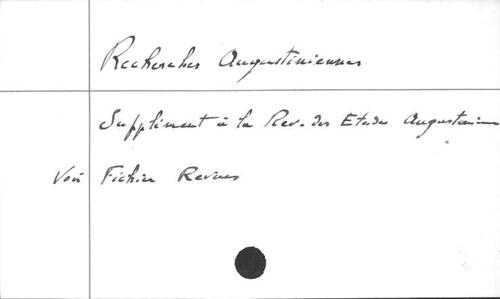 Recherches Augustiniennes
Supplément à la Rev. des Etudes Augustinien
Voir Fichier Revues